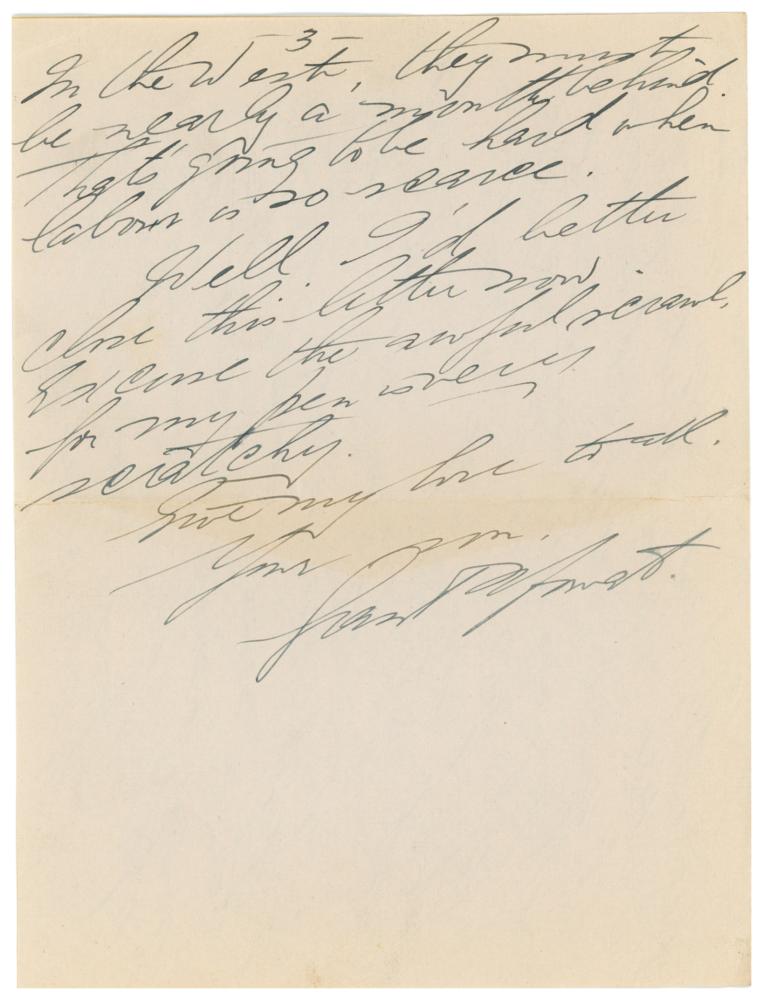 - 3 -
In the West, they must
be nearly a month behind.
That's going to be hard when
labour is so scarce.
Well. I'd better
close this letter now
Excuse the awful scrawl,
for my pen is very
scratchy.
Give my love to all.
Your son,